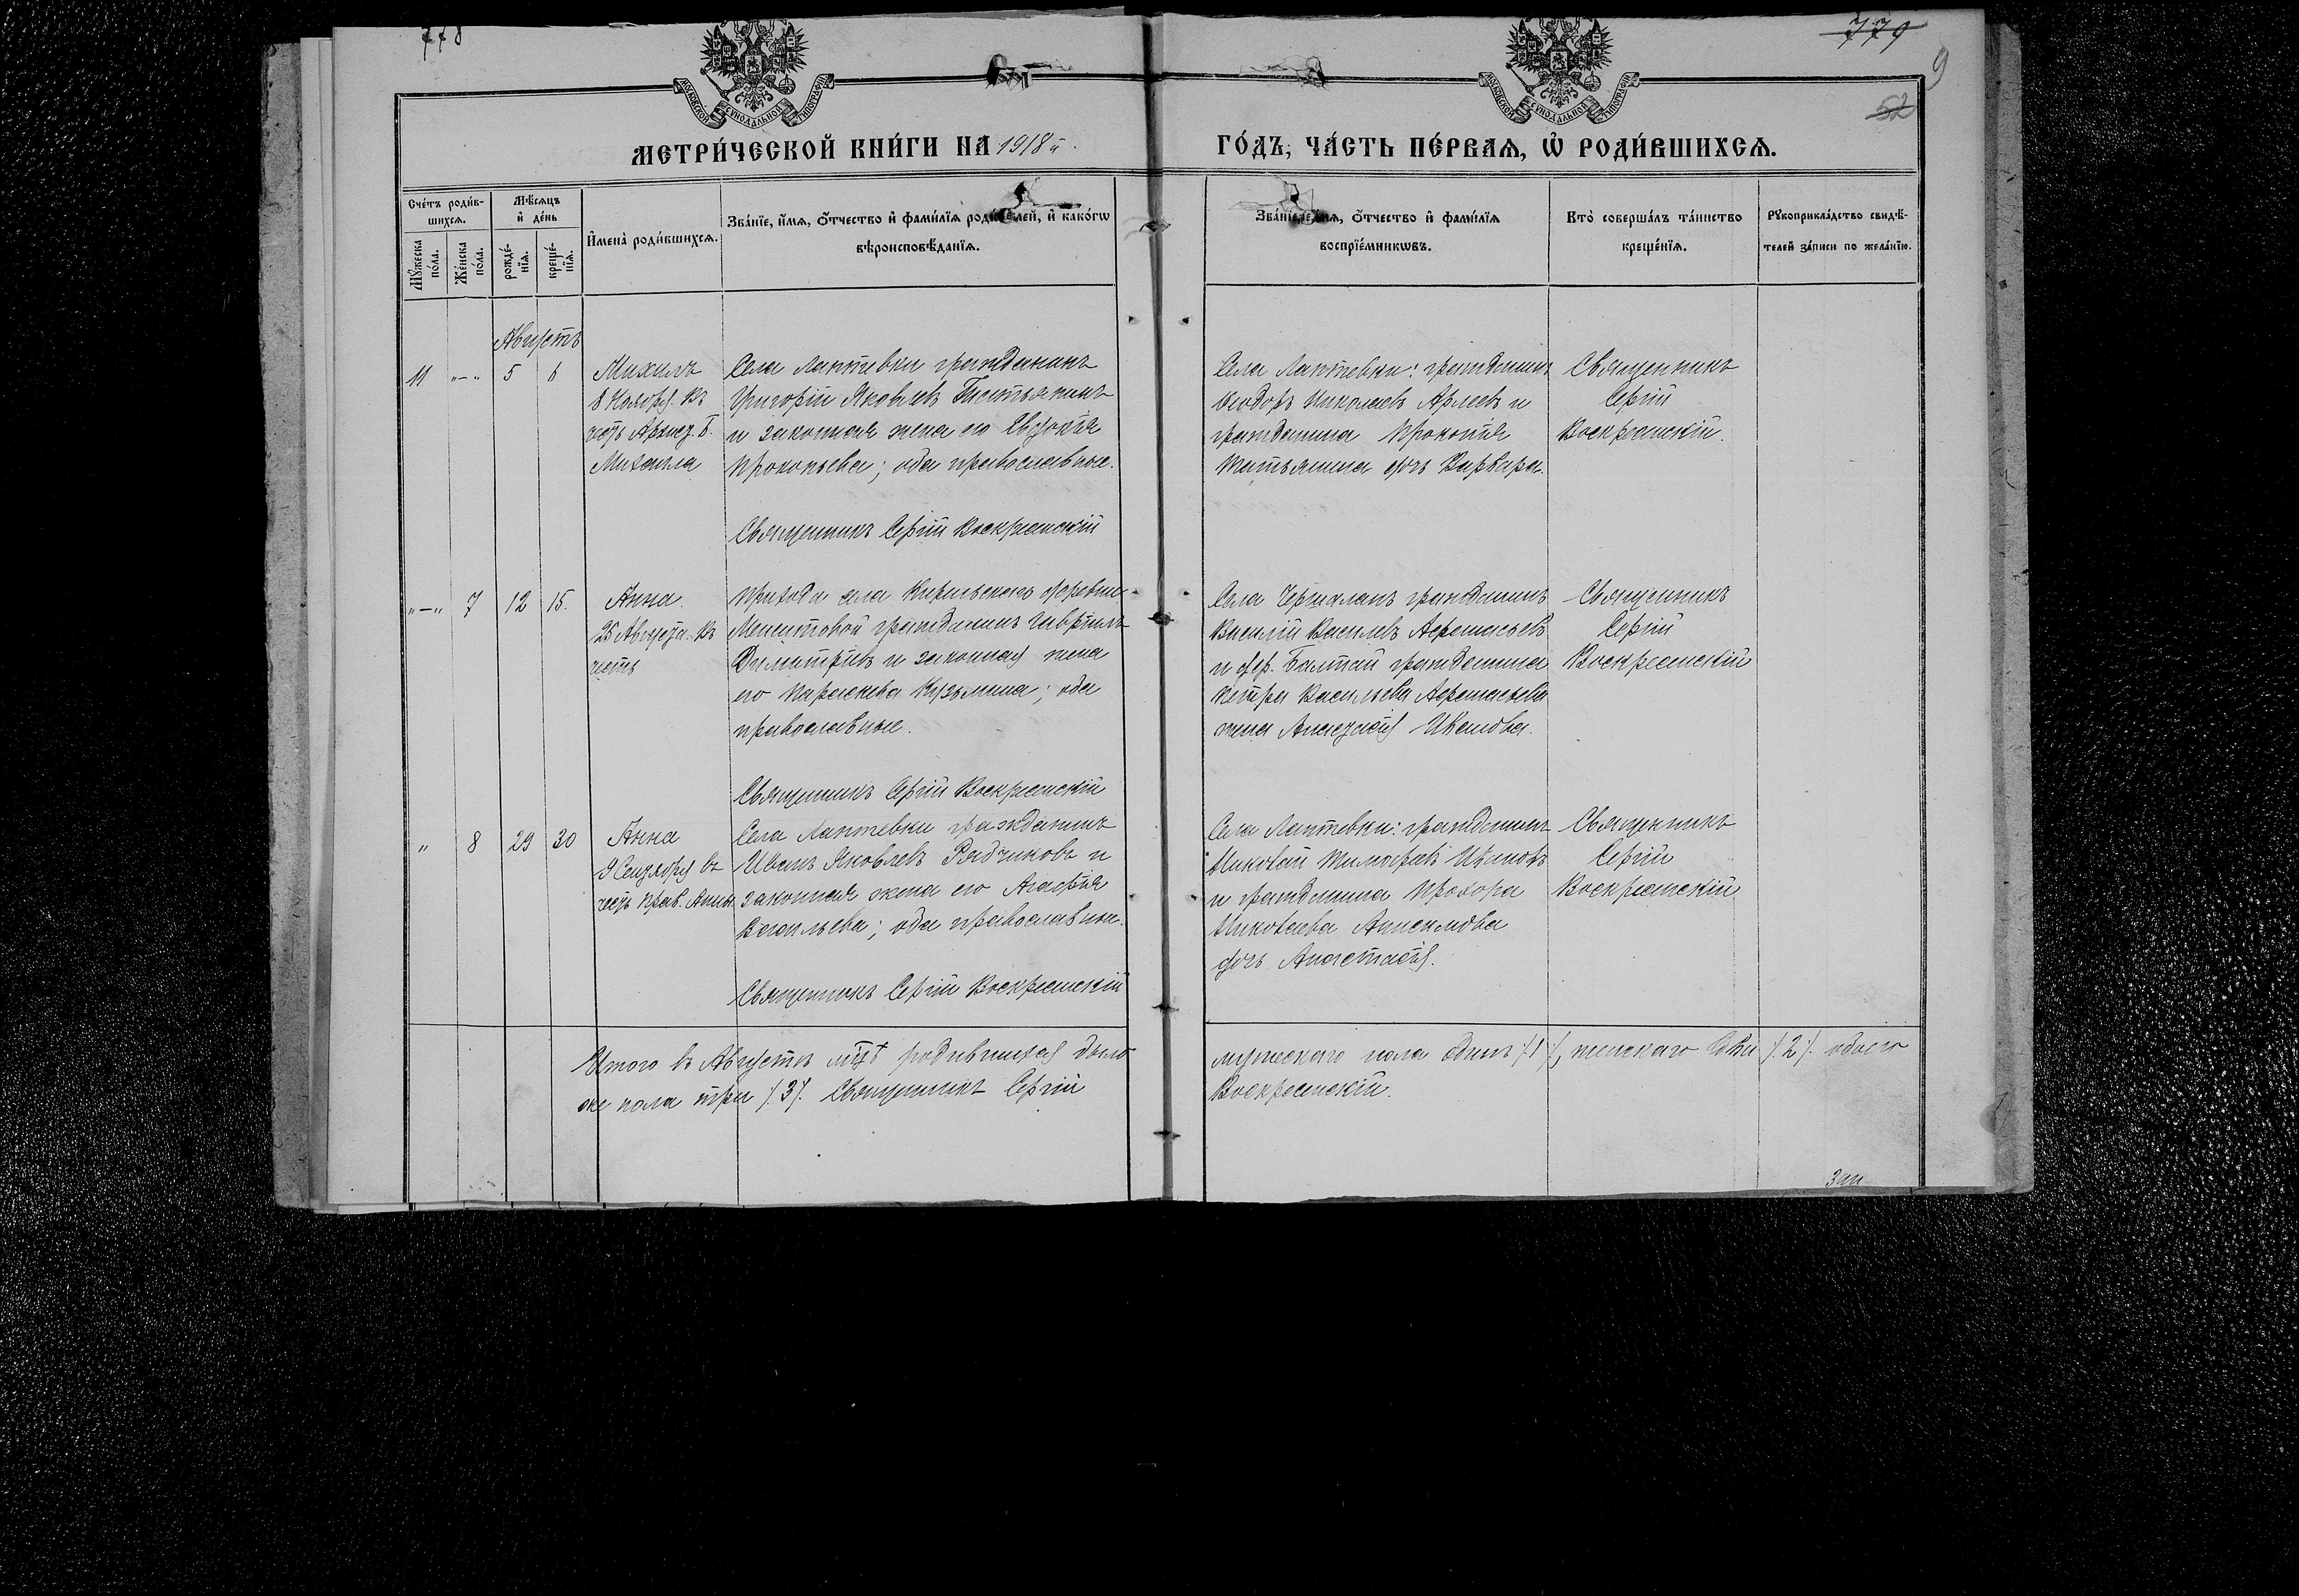 778
779
9
52
МОСКОВСКОЙ СѴНОДАЛЬНОЙ ТИПОГРАФІИ
МОСКОВСКОЙ СѴНОДАЛЬНОЙ ТИПОГРАФІИ
МЕТРИ́ЧЕСКОЙ КНИ́ГИ НА 1918 й.
ГО́ДЪ, ЧА́СТЬ ПЕ́РВАѦ, Ѡ҆ РОДИ́ВШИХСѦ.
Сче́тъ роди́в-
шихсѧ.
Мꙋ́жеска
по́ла.
Же́нска
по́ла.
Мѣ́сѧцъ
и҆ де́нь
рожде́-
нїѧ.
креще́-
нїѧ.
И҆мена̀ роди́вшихсѧ.
Зва́нїе, и҆́мѧ, ѻ҆́тчество и҆ фами́лїѧ роди́телей, и҆ како́гѡ
вѣроисповѣ́данїѧ.
Зва́нїе, и҆́мѧ, ѻ҆́тчество и҆ фами́лїѧ
воспрїе́мникѡвъ.
Кто̀ соверша́лъ та́инство
креще́нїѧ.
Рꙋкоприкла́дство свидѣ́-
телей за́писи по жела́нїю.
Августъ
11 „—„ 5 6
Михаилъ
8 Ноября. Въ
честь Архист. Б.
Михаила
Села Лаптевки гражданинъ
Григорій Яковлевъ
и законная жена его Евдокія
Прокопьева; оба православные.
Священникъ Сергій Воскресенскій
Села Лаптевки: гражданинъ
Ѳеодоръ Николаевъ и
гражданина Прокопія
дочь Варвара.
Священникъ
Сергій
Воскресенскій.
„—„ 7 12 15.
Анна
25 Августа. Въ
честь
Прихода села деревни
гражданинъ Гавріилъ
Димитріевъ и законная жена
его Параскева Кузьмина; оба
православные.
Священникъ Сергій Воскресенскій
Села гражданинъ
Василій Василевъ
и дер. Балтай гражданина
Петра Васильева
жена Анастасія Иванова.
Священникъ
Сергій
Воскресенскій
„ 8 29 30
Анна
9 Сентября въ
честь прав. Анны
Села Лаптевки гражданинъ
Иванъ Яковлевъ Рядчиковъ и
законная жена его Агафія
Васильева; оба православные.
Священникъ Сергій Воскресенскій
Села Лаптевки: гражданинъ
Николай Ивановъ
и гражданина Прохора
Николаева Анисимова
дочь Анастасія.
Священникъ
Сергій
Воскресенскій
Итого въ Августѣ м̃цѣ родившихся было мужескаго пола одинъ /.1/., женскаго двѣ /.2/. обоего
же пола три /.3/. Священникъ Сергій Воскресенскій.